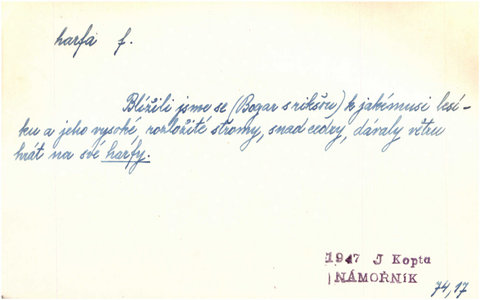 harfa f.
Blížili jsme se (Bogar s rikšou) k jakémusi lesí-
ku a jeho vysoké, rozložité stromy, snad cedry, dávaly větru
hrát na své harfy.
1947 J Kopta
NÁMOŘNÍK
74,17